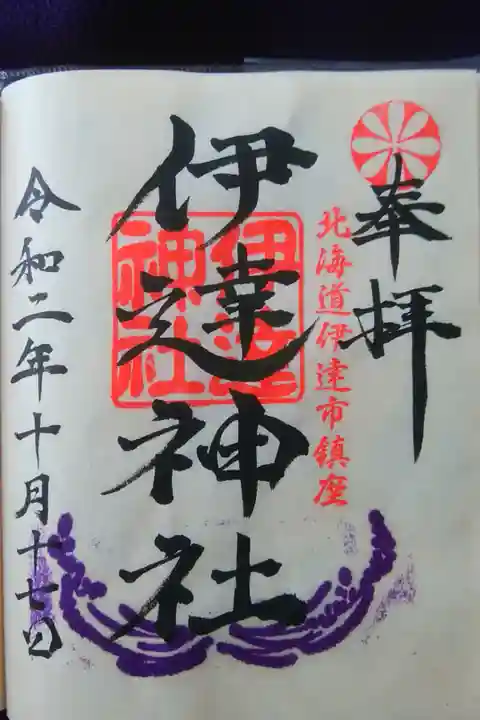 奉拝
北海道伊達市鎮座
伊達神社
伊達神社
令和二年十月十七日